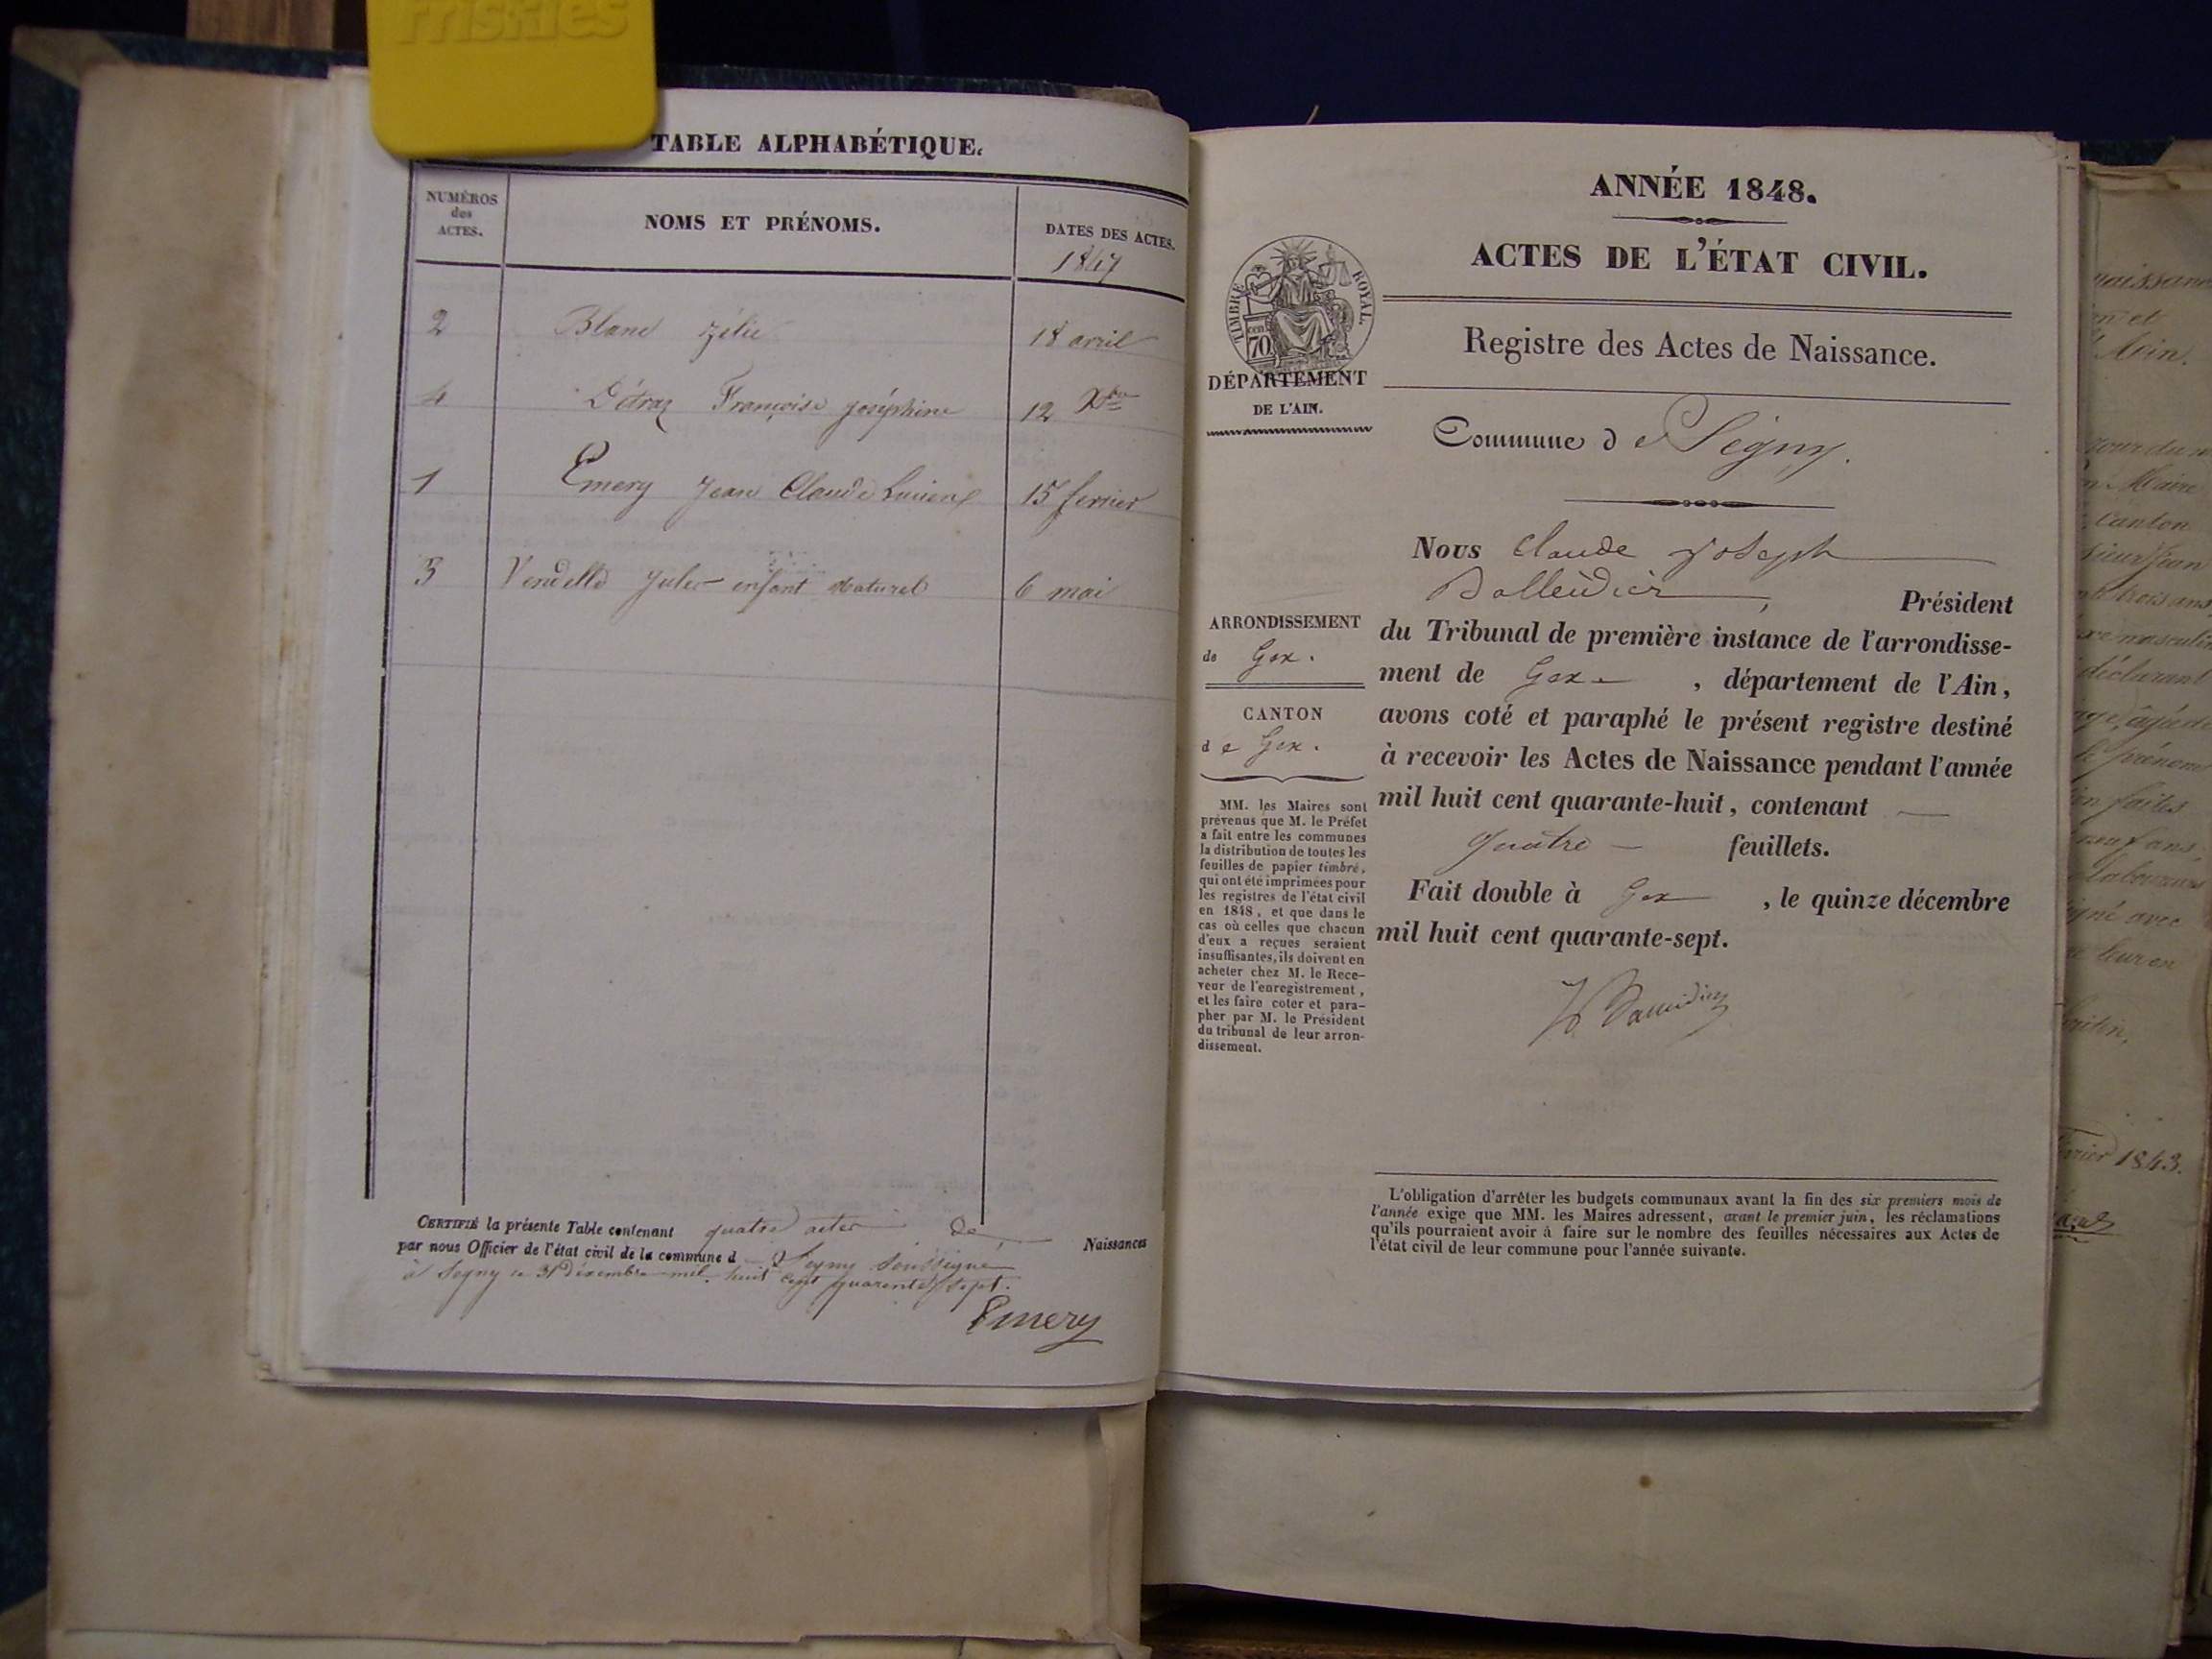 Friskies
TABLE ALPHABÉTIQUE.
NUMÉROS
des
ACTES.
NOMS ET PRÉNOMS.
DATES DES ACTES.
1847
2 Blanc Zélie 18 avril
4 Détraz Françoise joséphine 12 Xbre
1 Emery Jean Claude Lucien 15 fevrier
3 Vendelle Jules enfant naturel 6 mai
CERTIFIÉ la présente Table contenant quatre actes de Naissances
par nous Officier de l'état civil de la commune d Segny soussigné
à Segny le 31 décembre mil huit cent quarante sept.
Emery
ANNÉE 1848.
ACTES DE L'ÉTAT CIVIL.
Registre des Actes de Naissance.
TIMBRE ROYAL
70
DÉPARTEMENT
DE L'AIN.
Commune de Segny.
Nous Claude Joseph
Balleidier, Président
du Tribunal de première instance de l'arrondisse-
ment de Gex, département de l'Ain,
avons coté et paraphé le présent registre destiné
à recevoir les Actes de Naissance pendant l'année
mil huit cent quarante-huit, contenant
quatre feuillets.
Fait double à Gex, le quinze décembre
mil huit cent quarante-sept.
ARRONDISSEMENT
de Gex.
CANTON
de Gex.
MM. les Maires sont
prévenus que M. le Préfet
a fait entre les communes
la distribution de toutes les
feuilles de papier timbré,
qui ont été imprimées pour
les registres de l'état civil
en 1848, et que dans le
cas où celles que chacun
d'eux a reçues seraient
insuffisantes, ils doivent en
acheter chez M. le Rece-
veur de l'enregistrement,
et les faire coter et para-
pher par M. le Président
du tribunal de leur arron-
dissement.
L'obligation d'arrêter les budgets communaux avant la fin des six premiers mois de
l'année exige que MM. les Maires adressent, avant le premier juin, les réclamations
qu'ils pourraient avoir à faire sur le nombre des feuilles nécessaires aux Actes de
l'état civil de leur commune pour l'année suivante.
Maire
Canton
trois ans
masculin
déclarant
prénom
faites
ans,
avec
1843.